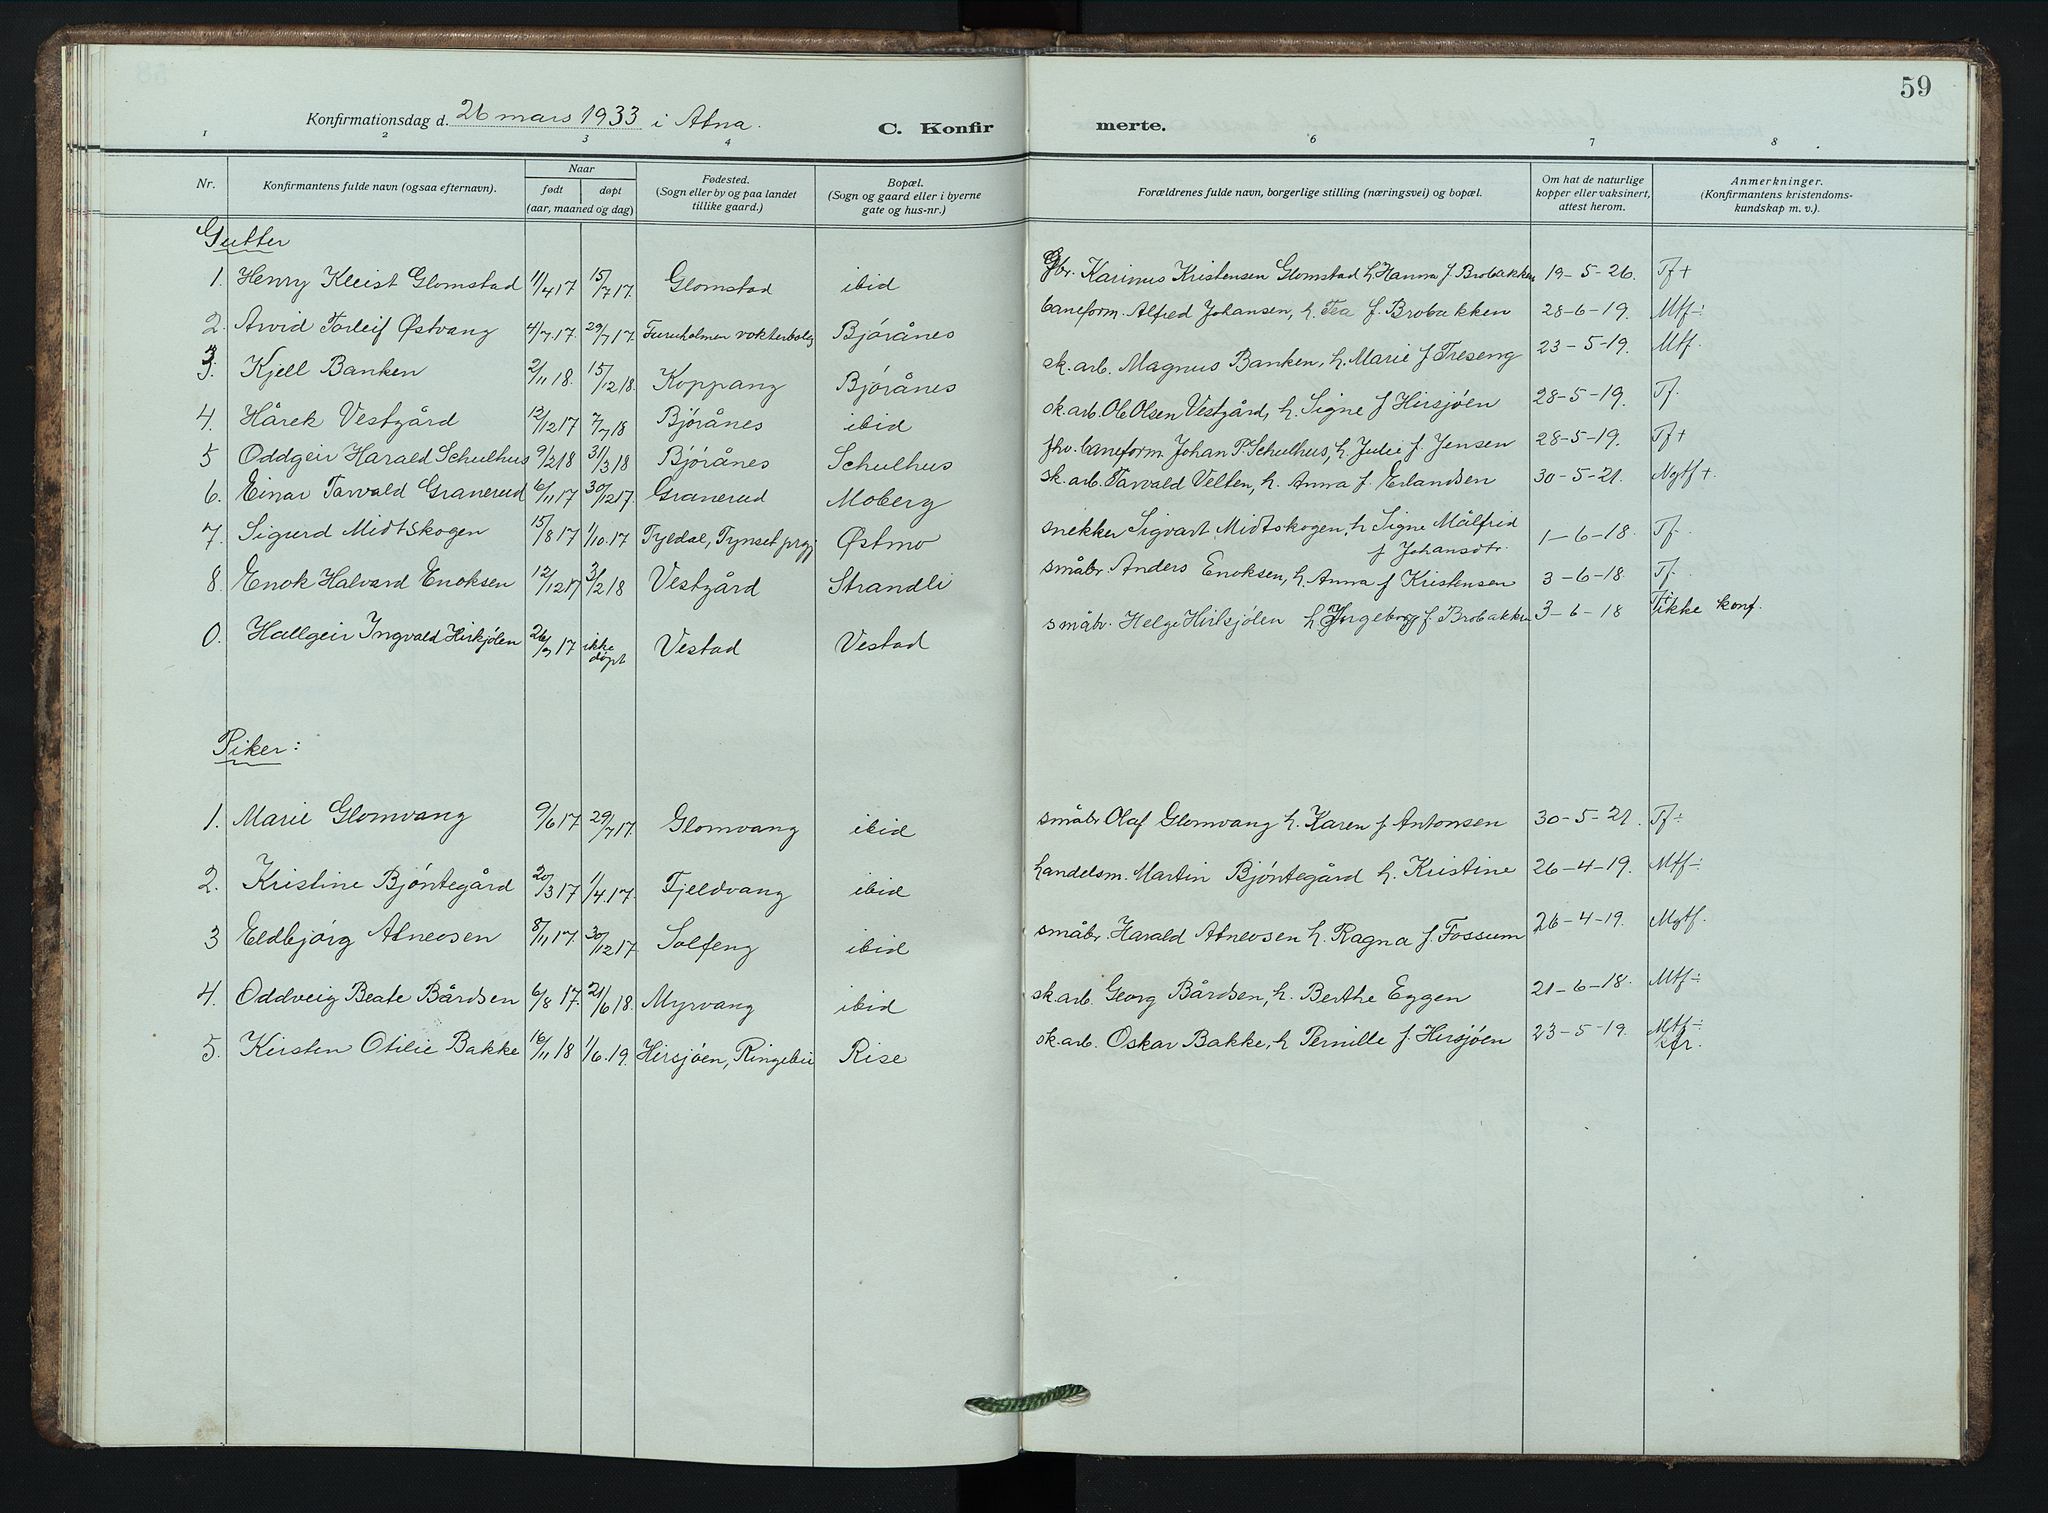 59
Konfirmationsdag d. 26 mars 1933 i Atna.
C. Konfir merte.
1 2 3 4 6 7 8
Nr. Konfirmantens fulde navn (ogsaa efternavn). Naar født døpt (aar, maaned og dag) Fødested. (Sogn eller by og paa landet tillike gaard.) Bopæl. (Sogn og gaard eller i byerne gate og hus-nr.) Forældrenes fulde navn, borgerlige stilling (næringsvei) og bopæl. Om hat de naturlige kopper eller vaksinert, attest herom. Anmerkninger. (Konfirmantens kristendoms-kundskap m. v.).
Gutter
1. Henry Kleist Glomstad 11/4 17 15/7 17. Glomstad ibid Gbr. Karinus Kristensen Glomstad h. Hanna f Brobakken 19-5-26. Tf+
2. Arvid Torleif Østvang 4/7 17. 29/7 17 Furuholmen vokterbolig Bjørånes baneform. Alfred Johansen, h. Tea f. Brobakken 28-6-19. Mtf÷
3. Kjell Banken 2/11 18. 15/12 18. Koppang Bjørånes sk. arb. Magnus Banken, h. Marie f Treseng 23-5-19. Mtf.
4. Hårek Vestgård 12/12 17 7/7 18 Bjørånes ibid sk. arb. Ole Olsen Vestgård, h. Signe f Hirsjøen 28-5-19. Tf.
5 Oddgeir Harald Schulhus 9/2 18 31/3 18 Bjørånes Schulhus fhv. baneform. Johan P. Schulhus, h. Julie f. Jensen 28-5-19. Tf+
6. Einar Torvald Granerud 6/11 17 30/12 17. Granerud Moberg sk. arb. Torvald Velten, h. Anna f. Erlandsen 30-5-21. Mgtf+.
7. Sigurd Midtskogen 15/8 17 1/10. 17 Tyldal, Tynset prgj Østmo snekker Sigvart Midtskogen, h Signe Målfrid f Johansdtr. 1-6-18. Tf.
8. Enok Halvard Enoksen 12/12 17 3/2 18 Vestgård Strandli småbr Anders Enoksen, h. Anna f Kristensen 3-6-18. Tf.
0. Hallgeir Ingvald Hirkjølen 26/9 17 ikke døpt Vestad Vestad småbr. Helge Hirkjølen h Ingeborg f Brobakken 3-6-18 Tf+ ikke konf.
Piker:
1. Marie Glomvang 9/6 17. 29/7 17. Glomvang ibid småbr Olaf Glomvang h. Karen f Antonsen 30-5-21. Tf÷
2. Kristine Bjøntegård 20/3 17 1/4. 17. Fjeldvang ibid handelsm. Martin Bjøntegård h. Kristine 26-4-19. Mtf÷
3 Eldbjørg Atneosen 8/11 17. 30/12 17. Solfeng ibid småbr. Harald Atneosen h. Ragna f. Fossum 26-4-19. Mgtf.
4. Oddveig Beate Bårdsen 6/8 17. 21/6 18. Myrvang ibid sk. arb. Georg Bårdsen, h. Berthe Eggen 21-6-18. Mtf÷
5. Kirsten Otilie Bakke 16/11 18 1/6. 19. Hirsjøen, Ringebu Rise sk. arb. Oskar Bakke, h Pernille f. Hirsjøen 23-5-19. Mtf÷